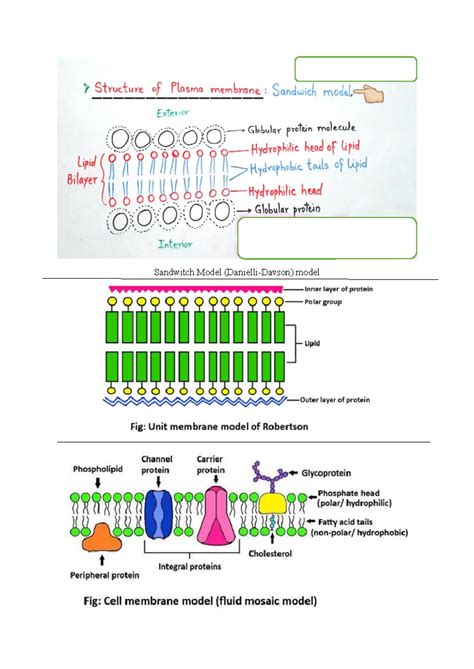 Structure of Plasma membrane: Sandwich model
Exterior
Globular protein molecule
Hydrophilic head of lipid
Lipid Bilayer
Hydrophobic tails of lipid
Hydrophilic head
Globular protein
Interior
Sandwitch Model (Danielli-Davson) model
Inner layer of protein
Polar group
Lipid
Outer layer of protein
Fig: Unit membrane model of Robertson
Phospholipid
Channel protein
Carrier protein
Glycoprotein
Phosphate head (polar/ hydrophilic)
Fatty acid tails (non-polar/ hydrophobic)
Cholesterol
Integral proteins
Peripheral protein
Fig: Cell membrane model (fluid mosaic model)